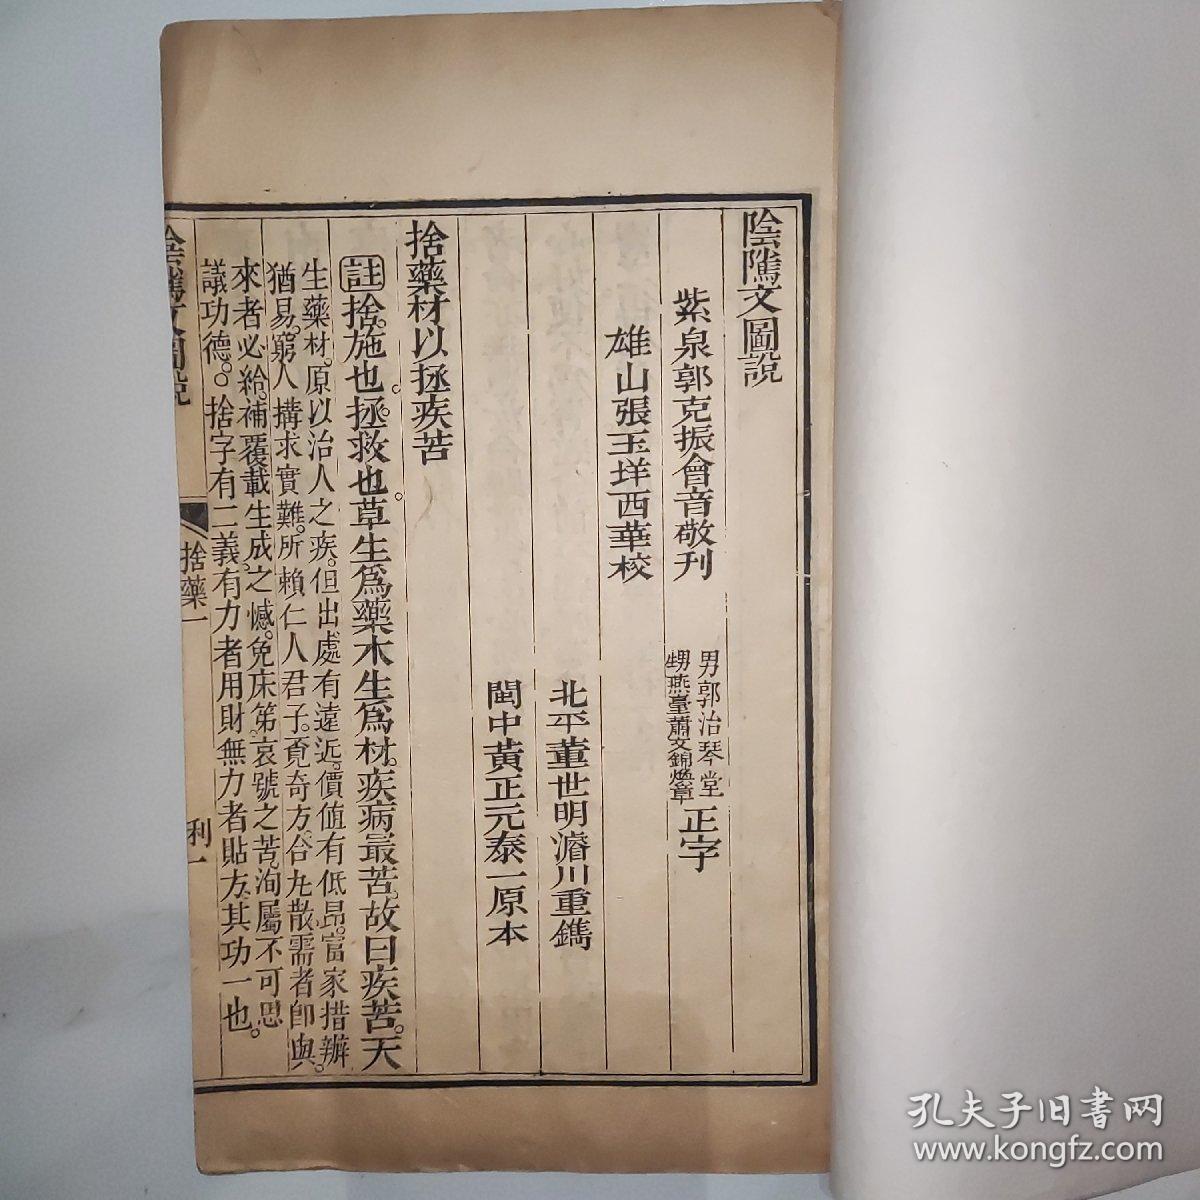 陰隲文圖說
紫泉郭克振會音敬刊
男郭治琴堂
甥燕臺蕭文錦煥章
正字
雄山張玉垟西華校
北平董世明濬川重鐫
閩中黃正元泰一原本
捨藥材以拯疾苦
註捨。施也。拯。救也。草生爲藥。木生爲材。疾病最苦。故曰疾苦。天
生藥材。原以治人之疾。但出處有遠近。價值有低昂。富家措辦
猶易。窮人搆求實難。所賴仁人君子。覓奇方。合丸散。需者卽與。
來者必給。補覆載生成之憾。免床笫哀號之苦。洵屬不可思
議功德。○捨字有二義。有力者用財。無力者貼方。其功一也。
陰隲文圖說
捨藥一
利一
孔夫子旧书网
www.kongfz.com